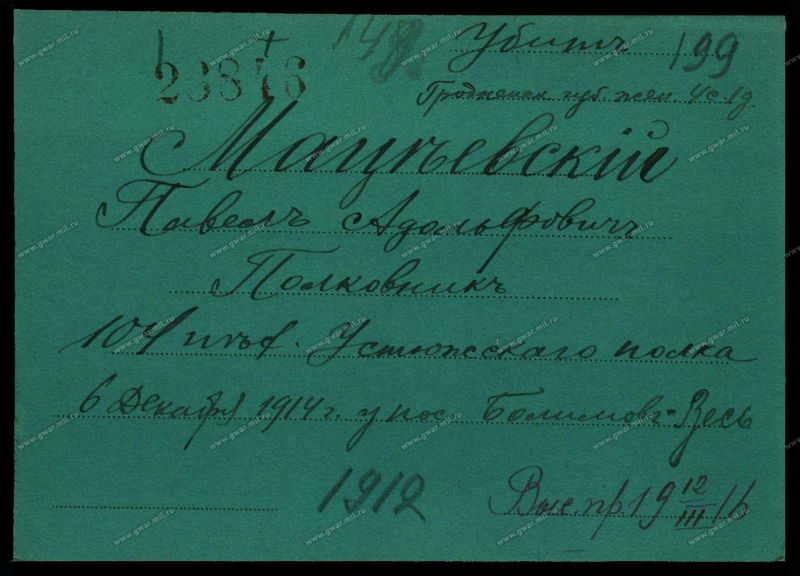 23846
148
Убитъ 199
Гродненск губ. жен 4с 1д.
Мацѣевскій
Павелъ Адольфовичъ
Полковникъ
104 пѣх. Устюжскаго полка
6 Декабря 1914 г. у пос Болимовъ-Весь
1912
Выс. пр 19 12/III 16
www.gwar.mil.ru